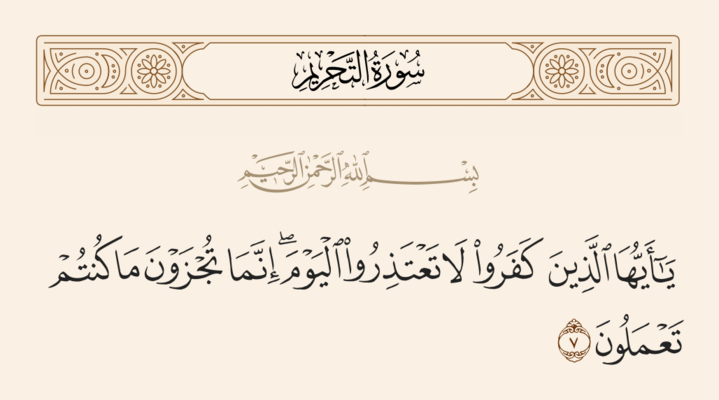 سُورَةُ التَّحْرِيمِ
بِسْمِ ٱللَّهِ ٱلرَّحْمَٰنِ ٱلرَّحِيمِ
يَٰٓأَيُّهَا ٱلَّذِينَ كَفَرُوا۟ لَا تَعْتَذِرُوا۟ ٱلْيَوْمَ ۖ إِنَّمَا تُجْزَوْنَ مَا كُنتُمْ
تَعْمَلُونَ ٧